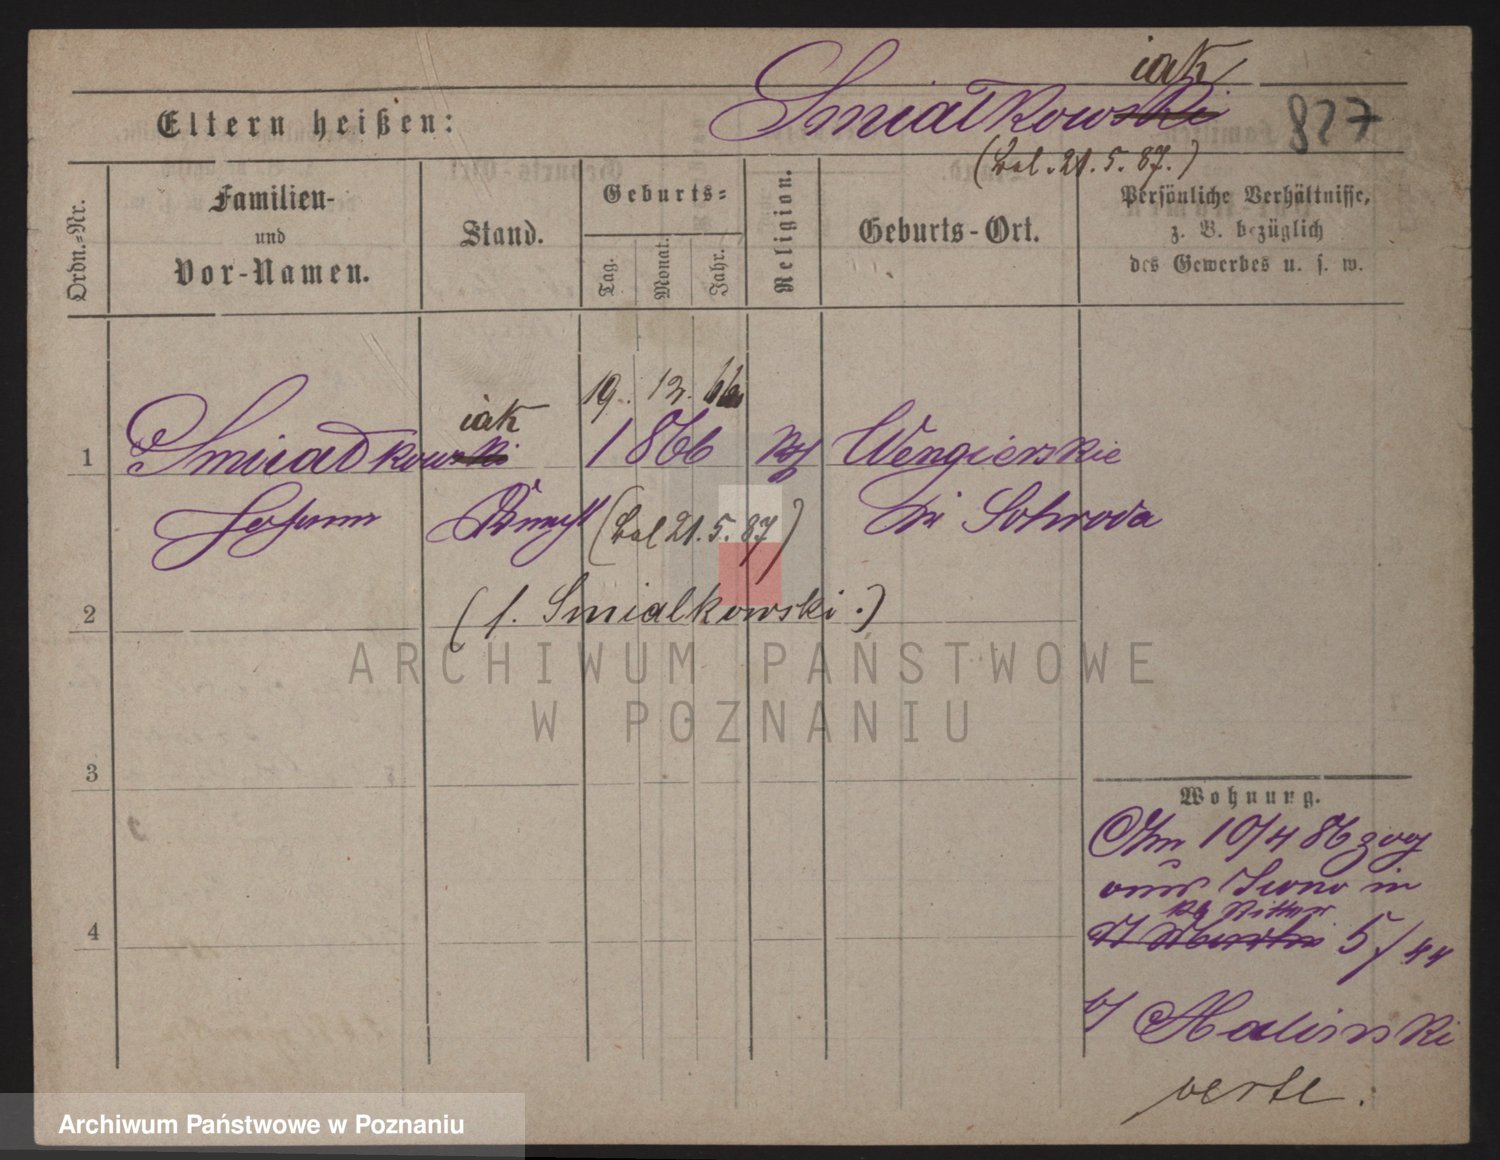 iak
Eltern heißen: Smiatkowski 827
(Bal. 21. 5. 87.)
Ordn.-Nr.
Familien- und Vor-Namen.
Stand.
Geburts-
Tag. Monat. Jahr.
Religion.
Geburts-Ort.
Persönliche Verhältnisse,
z. B. bezüglich
des Gewerbes u. s. w.
19. 12. 66
iak
1 Smiatkowski 1866 Wengierskie
Johann Knecht (Bal 21. 5. 87) Schroda
2 (f. Smialkowski.)
3
4
Wohnung.
Am 10/4 86 zog
aus in
Ritter
5/44
b/ Halinski
verte.
ARCHIWUM PAŃSTWOWE
W POZNANIU
Archiwum Państwowe w Poznaniu